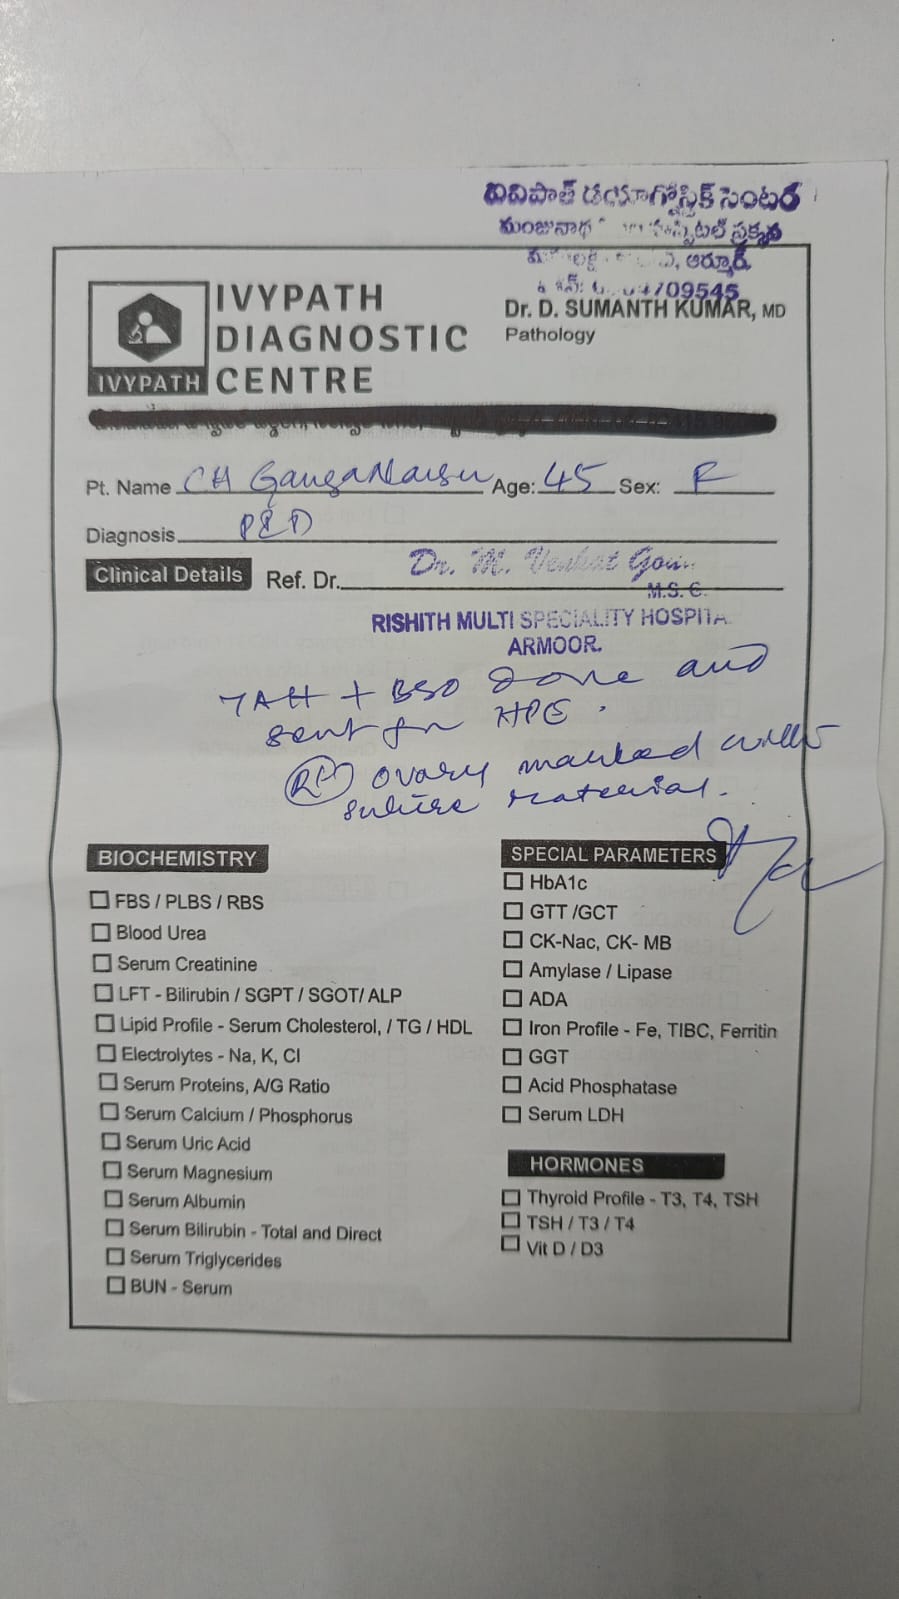 వివిపాత్ డయాగ్నోస్టిక్ సెంటర్
మంజునాథ హాస్పిటల్ ప్రక్కన
ఆర్మూర్.
709545
IVYPATH
DIAGNOSTIC
CENTRE
IVYPATH
Dr. D. SUMANTH KUMAR, MD
Pathology
Pt. Name CH Age: 45 Sex: F
Diagnosis PID
Clinical Details Ref. Dr. Dr. M. Venkat
M.S. G.
RISHITH MULTI SPECIALITY HOSPITA
ARMOOR.
TAH + BSO done and
sent for HPE.
Rt ovary marked with
suture material.
BIOCHEMISTRY
FBS / PLBS / RBS
Blood Urea
Serum Creatinine
LFT - Bilirubin / SGPT / SGOT/ ALP
Lipid Profile - Serum Cholesterol, / TG / HDL
Electrolytes - Na, K, Cl
Serum Proteins, A/G Ratio
Serum Calcium / Phosphorus
Serum Uric Acid
Serum Magnesium
Serum Albumin
Serum Bilirubin - Total and Direct
Serum Triglycerides
BUN - Serum
SPECIAL PARAMETERS
HbA1c
GTT /GCT
CK-Nac, CK- MB
Amylase / Lipase
ADA
Iron Profile - Fe, TIBC, Ferritin
GGT
Acid Phosphatase
Serum LDH
HORMONES
Thyroid Profile - T3, T4, TSH
TSH / T3 / T4
Vit D / D3